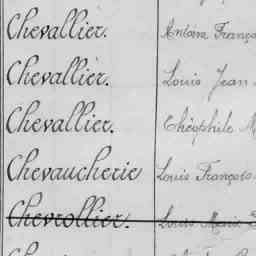 Chevallier. Antoine França
Chevallier. Louis Jean
Chevallier. Théophile M
Chevaucherie Louis François
Chevrollier. Louis Marie